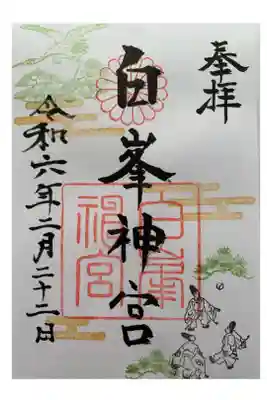 奉拝
白峯神宮
令和六年二月二十二日
白峯
神宮